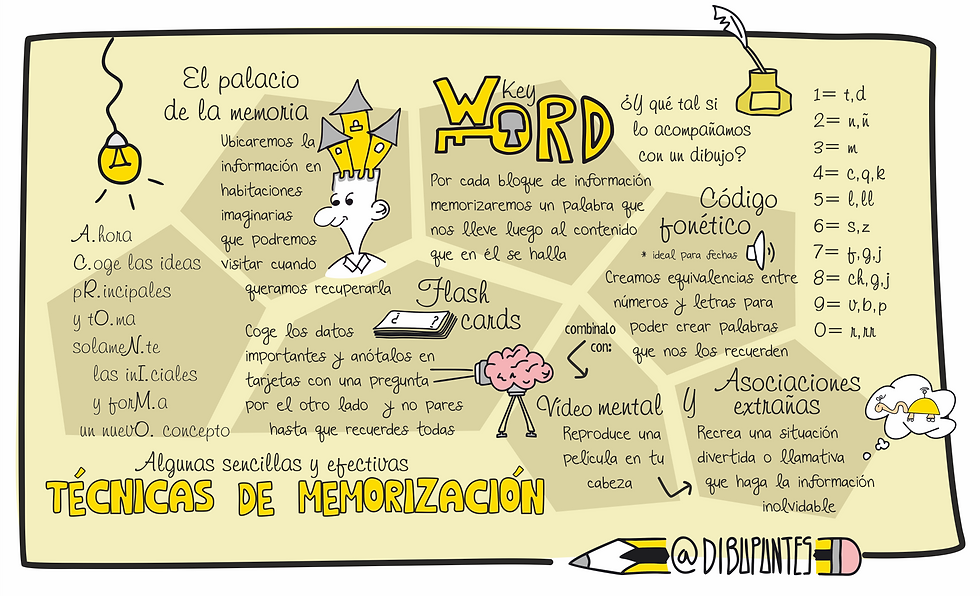 El palacio
de la memoria
Ubicaremos la
información en
habitaciones
imaginarias
que podremos
visitar cuando
queramos recuperarla
Key
WORD
Por cada bloque de información
memorizaremos un palabra que
nos lleve luego al contenido
que en él se halla
¿Y qué tal si
lo acompañamos
con un dibujo?
Código
fonético
* ideal para fechas
Creamos equivalencias entre
números y letras para
poder crear palabras
que nos los recuerden
1= t,d
2= n,ñ
3= m
4= c,q,k
5= l,ll
6= s,z
7= f,g,j
8= ch,g,j
9= v,b,p
0= r,rr
A.hora
C.oge las ideas
pR.incipales
y tO.ma
solameN.te
las inI.ciales
y forM.a
un nuevO. concepto
Flash
cards
¿ ?
Coge los datos
importantes y anótalos en
tarjetas con una pregunta
por el otro lado y no pares
hasta que recuerdes todas
combínalo
con:
Vídeo mental
Reproduce una
película en tu
cabeza
y
Asociaciones
extrañas
Recrea una situación
divertida o llamativa
que haga la información
inolvidable
Algunas sencillas y efectivas
TÉCNICAS DE MEMORIZACIÓN
@DIBUPUNTES